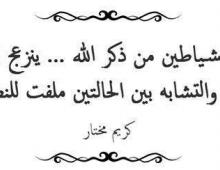 شياطين من ذكر الله ... ينزعج
والتشابه بين الحالتين ملفت
كريم مختار